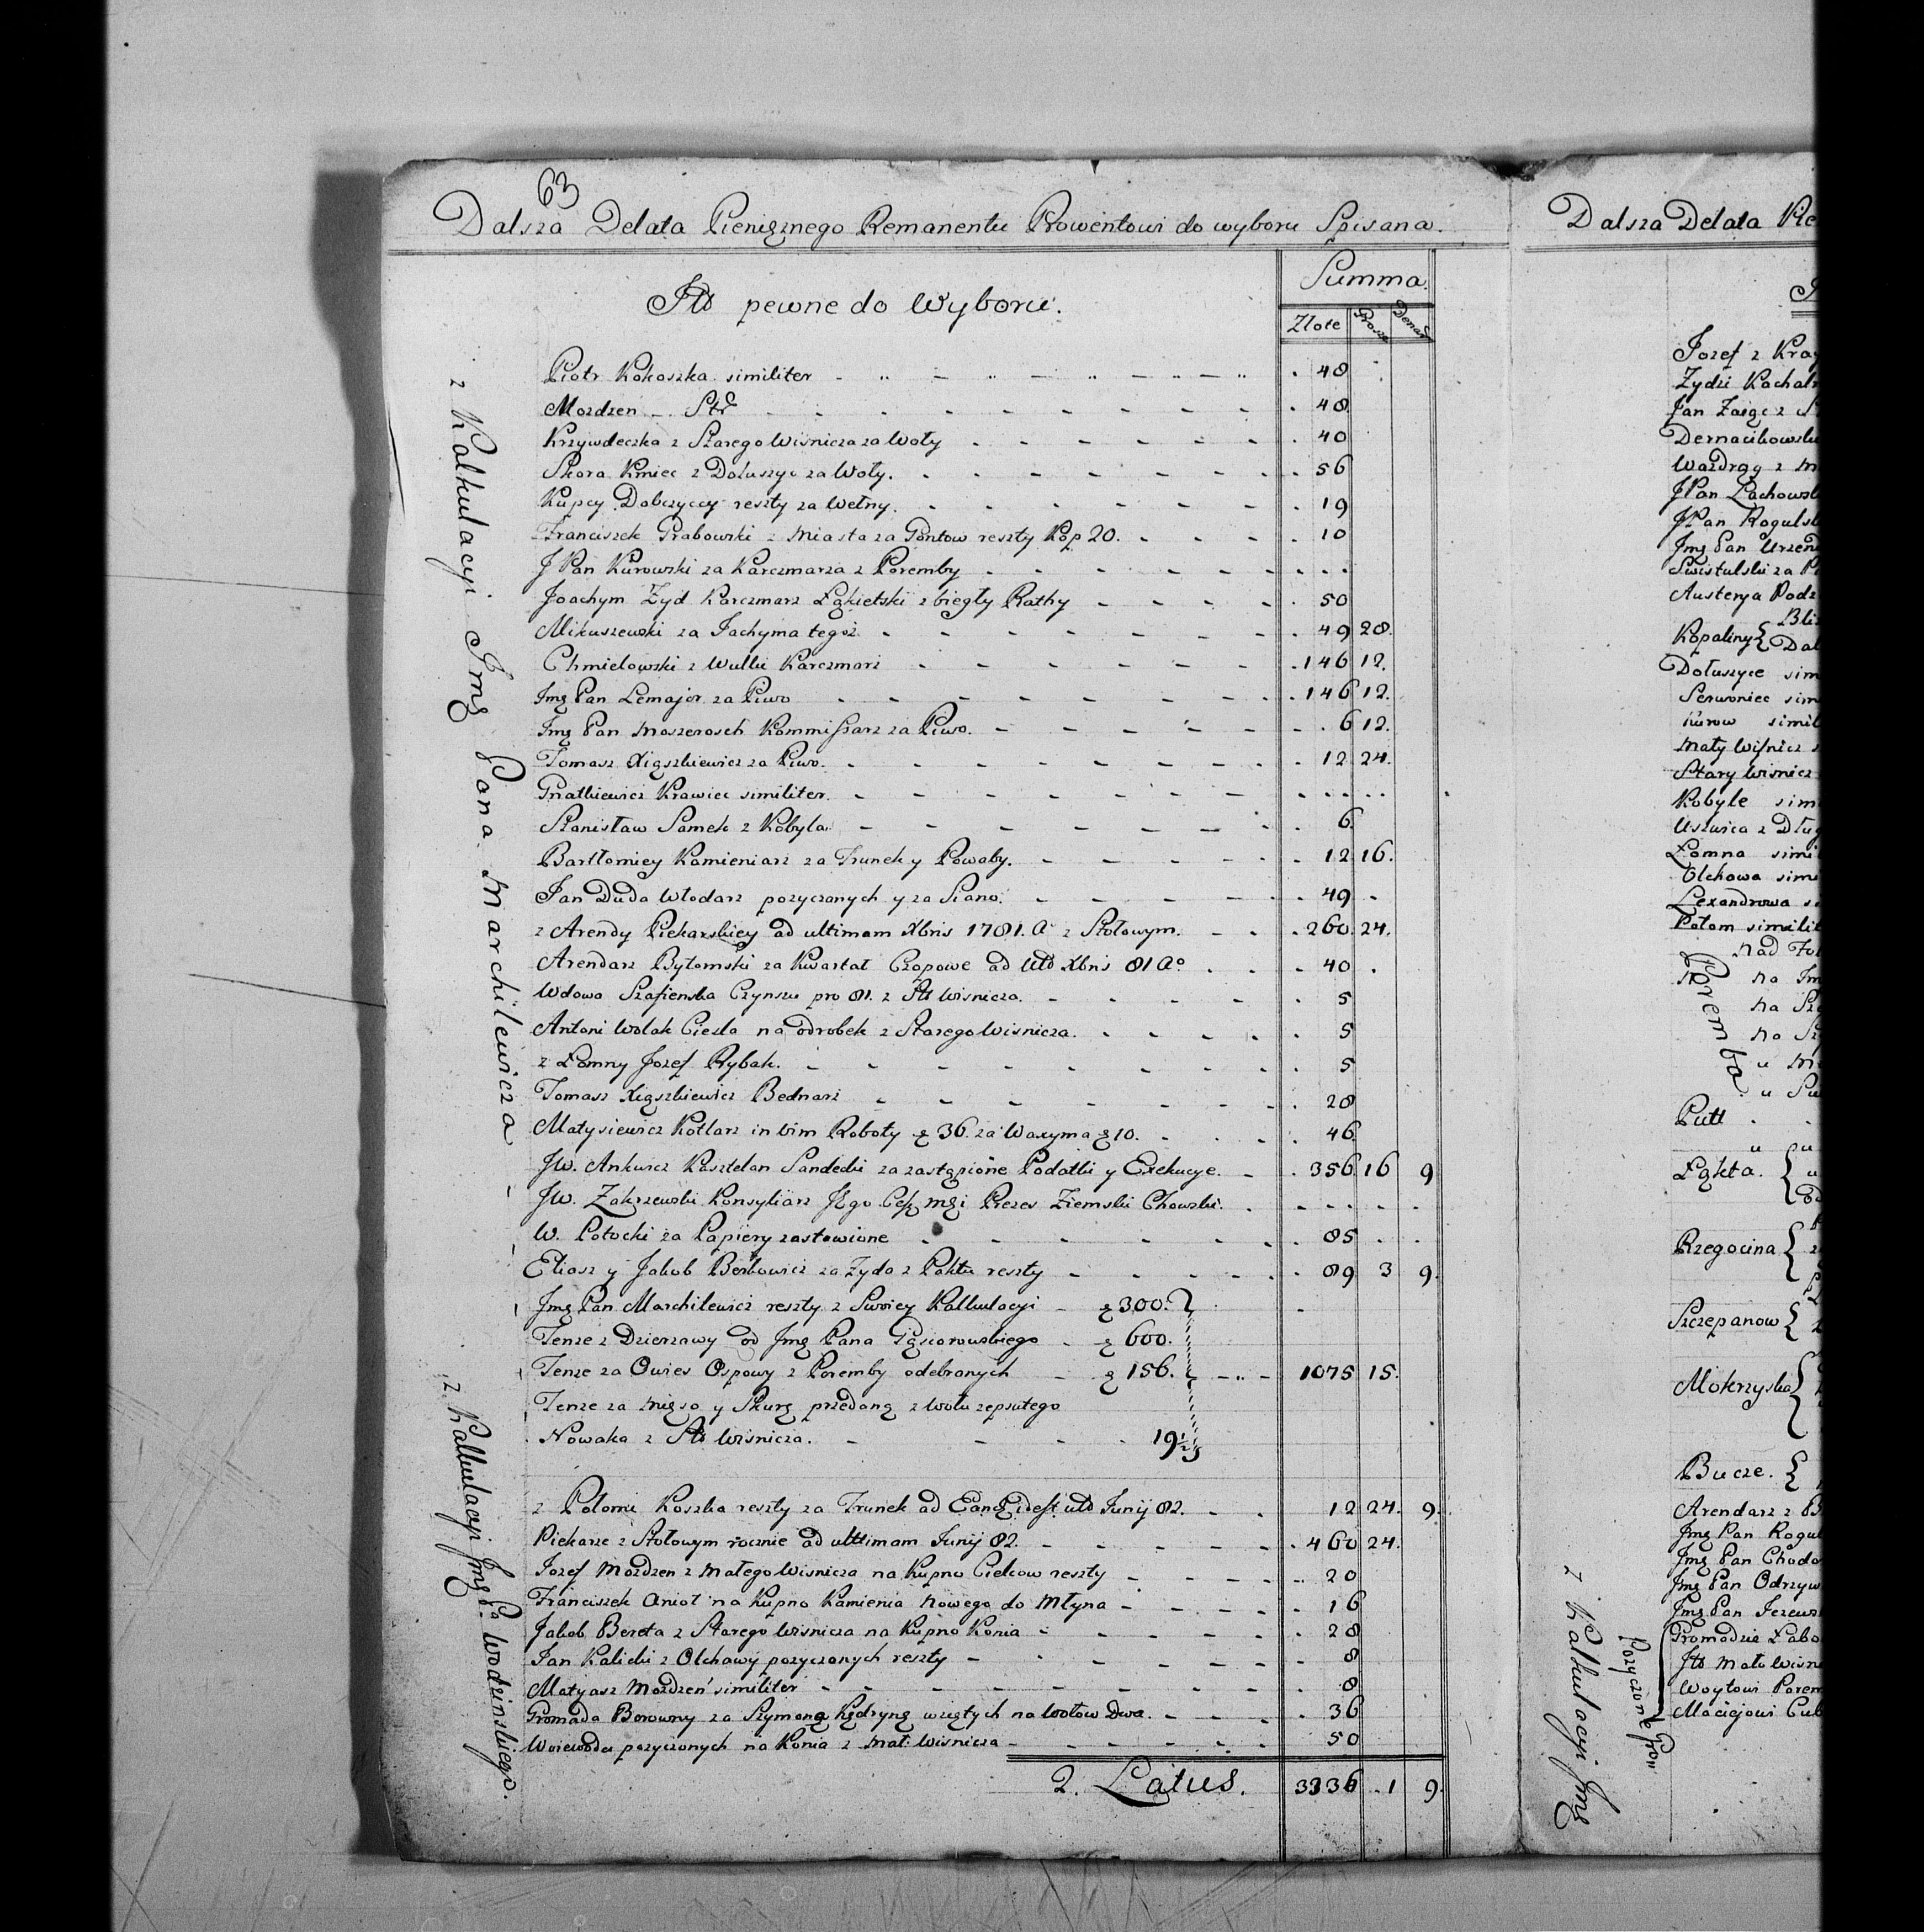 63
Dalsza Delata Pienięznego Remanentu Prowentowi do wyboru Spisana.
Itd pewne do Wyboru.
Summa.
Zlote Grosze Denar
z Kalkulacyi Jmg Pana Marchilewicza
Piotr Kokoszka similiter 48
Mozdzen Str 48
Krzywdeczka z Starego Wisnicza za Woły 40
Skora Kmiec z Dołuszyc za Woły. 56
Kupcy Dobczyccy reszty za Wełny. 19
Franciszek Grabowski z Miasta za Gontow reszty Kop 20. 10
J Pan Kurowski za Karczmarza z Poremby
Joachym Zyd Karczmarz Łąkietski zbiegły Rathy 50
Mikuszewski za Jachyma tegoż 49 28.
Chmielowski z Wulki Karczmarz 146 12.
Jmg Pan Lemajor za Piwo 146 12.
Jmg Pan Moszerosch Kommissarz za Piwo. 6 12.
Tomasz Xięszkiewicz za Piwo. 12 24.
Gnatkiewicz Krawiec similiter.
Stanisław Samek z Kobyla 6.
Bartłomiey Kamieniarz za Trunek y Powaby. 12 16.
Jan Duda Włodarz pozyczonych y za Siano. 49
z Arendy Piekarskiey ad ultimam Xbris 1781. A z Stołowym. 260 24.
Arendarz Bytomski za Kwartał Czopowe ad Utd Xbris 81 Ao 40
Wdowa Szafienska Czynszu pro 81. z Stt Wisnicza. 5
Antoni Wolak Ciesla na odrobek z Starego Wisnicza. 5
z Łomny Jozef Rybak. 5
Tomasz Xięszkiewicz Bednarz 28
Matysiewicz Kotlarz in vim Roboty z 36. za Waxyma z 10. 46
JW. Ankwicz Kasztelan Sandecki za zastąpione Podatki y Exekucye. 356 16 9
JW. Zakrzewski Konsyliarz Jego Ces mgi Prezes Ziemski Chowski.
W. Potocki za Papiery zastawione 85
Eliasz y Jakob Berkowicz za Zyda z Paktu reszty 89 3 9.
Jmg Pan Marchilewicz reszty z Swoiey Kalkulacyi z 300.
Tenze z Dzierzawy od Jmg Pana Gąsiorowskiego z 600.
Tenze za Owies Ospowy z Poremby odebranych z 156. 1075 15.
Tenze za mięso y Skurę przedaną z wołu zepsutego
Nowaka z Stt Wisnicza. 19½
z Kalkulacyi Jmg P. Wodzinskiego.
z Połomu Koszka reszty za Trunek ad Eand idest utd Junij 82. 12 24. 9.
Piekarze z Stołowym rocznie ad ulltimam Junij 82. 460 24.
Jozef Mozdzen z Małego Wisnicza na Kupno Cielcow reszty 20
Franciszek Anioł na Kupno Kamienia Nowego do Młyna 16
Jakob Bereta z Starego Wisnicza na Kupno Konia 28
Jan Kalicki z Olchawy pozyczonych reszty 8
Matyasz Mozdzeń similiter 8
Gromada Borowny za Szymona Kędrynę wziętych na wołow Dwa. 36
Woiewodu pozyczonych na Konia z Mał: Wisnicza 50
2. Latus. 3336 1 9.
Dalsza Delata Pie
Jozef z Kray
Zydzi Kachal
Jan Zaięc z
Dernacikowski
Wazdrąg z M
JPan Lachowsk
JPan Rogulsk
Jmg Pan Urzend
Swistulski za P
Austerya Podz
Kopaliny { Bli
Dal
Dołuszyce sim
Serwoniec sim
Kurow simil
Mały Wisnicz s
Stary Wisnicz
Kobyle sim
Uszwica z Dług
Łomna simi
Olchowa simi
Lexandrowa s
Połom simili
Poremba
nad
na Jm
na Sz
na Sz
u M
u Su
Putt
Łąkta. {
Rzegocina {
Szczepanow {
Mokrzyska {
Bucze. {
Arendarz z B
Jmg Pan Rogul
Jmg Pan Chodo
Jmg Pan Odrzyw
Jmg Pan Jezews
Gromadzie Łabo
Itd Mało Wisni
Woytowi Porem
Maciejowi Cub
Pozyczone Grom
z Kalkulacyi Jmg